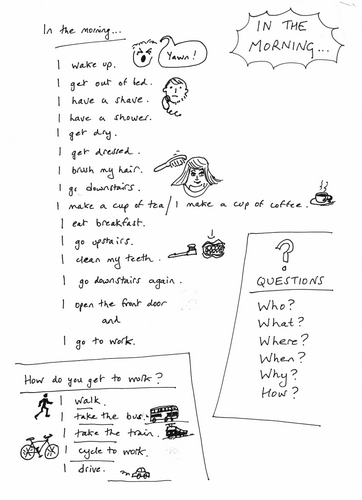 In the morning...
Yawn!
IN THE
MORNING...
I wake up.
I get out of bed.
I have a shave.
I have a shower.
I get dry.
I get dressed.
I brush my hair.
I go downstairs.
I make a cup of tea/I make a cup of coffee.
I eat breakfast.
I go upstairs.
I clean my teeth.
I go downstairs again.
I open the front door
and
I go to work.
?
QUESTIONS
Who?
What?
Where?
When?
Why?
How?
How do you get to work?
I walk.
I take the bus.
I take the train.
I cycle to work.
I drive.